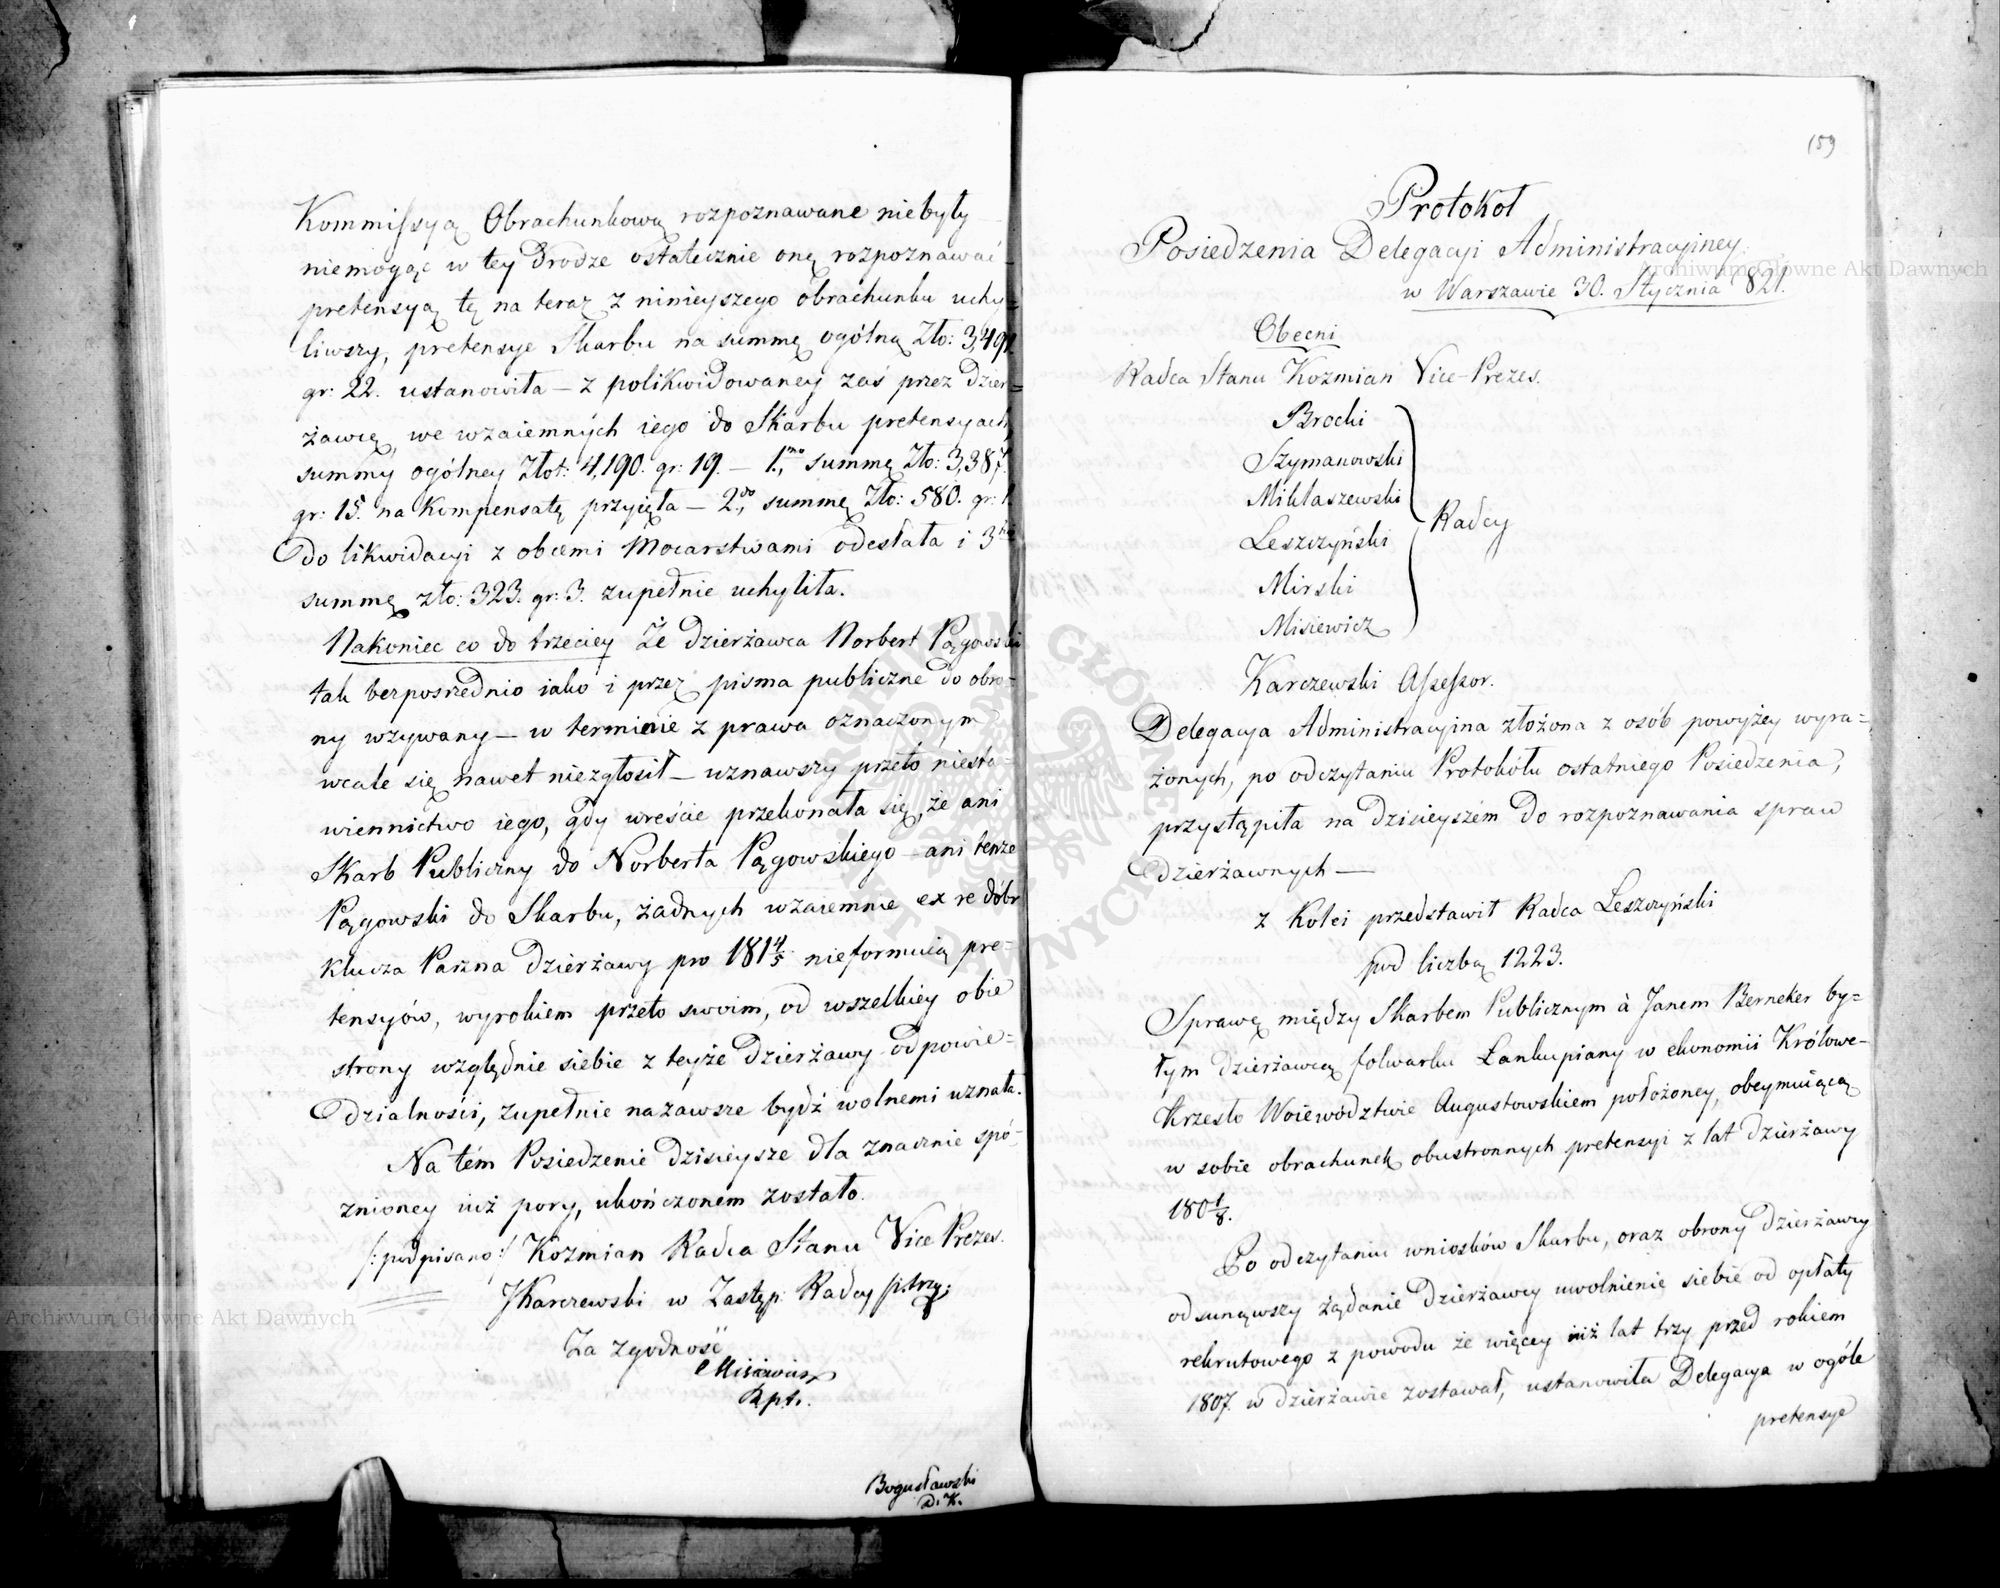 Kommissyą Obrachunkową rozpoznawane niebyły
niemogąc w tey drodze ostatecznie onę rozpoznawać
pretensyą tę na teraz z ninieyszego obrachunku uchy=
liwszy, pretensye Skarbu na summę ogólną Zło: 3,491.
gr: 22. ustanowiła — z polikwidowaney zaś przez dzier=
żawcę we wzaiemnych iego do Skarbu pretensyach
summy ogólney Złot: 4,190. gr: 19. — 1.mo summę Zło: 3,387.
gr: 15. na kompensatę przyięła — 2do, summę Zło: 580. gr: 1.
do likwidacyi z obcemi Mocarstwami odesłała i 3tio
summę zło: 323. gr: 3. zupełnie uchyliła.
Nakoniec co do trzeciey Że dzierżawca Norbert Pągowski
tak bezpośrednio iako i przez pisma publiczne do obro=
ny wzywany — w terminie z prawa oznaczonym
wcale się nawet niezgłosił — uznawszy przeto niesta=
wiennictwo iego, gdy wreście przekonała się, że ani
Skarb Publiczny do Norberta Pągowskiego — ani tenże
Pągowski do Skarbu, żadnych wzaiemnie ex re dóbr
klucza Parzna dzierżawy pro 1814/5 nieformuią pre=
tensyów, wyrokiem przeto swoim, od wszelkiey obie
strony względnie siebie z teyże dzierżawy odpowie=
dzialności, zupełnie nazawsze bydź wolnemi uznała.
Na tém Posiedzenie dzisieysze dla znacznie spó=
znioney iuż pory, ukończonem zostało.
/: podpisano :/ Kozmian Radca Stanu Vice Prezes.
JKarczewski w Zastęp: Radcy ptrzy:
Za zgodność
Misiewicz
Bogusławski
D. K.
159
Protokoł
Posiedzenia Delegacyi Administracyiney
w Warszawie 30. Stycznia 821.
Obecni
Radca Stanu Kozmian Vice-Prezes.
Brocki
Szymanowski
Miklaszewski
Leszczyński
Radcy
Mirski
Misiewicz
Karczewski Assessor.
Delegacya Administracyina złożona z osób powyżey wyra=
żonych, po odczytaniu Protokółu ostatniego Posiedzenia,
przystąpiła na dzisieyszém do rozpoznawania spraw
dzierżawnych —
z Kolei przedstawił Radca Leszczyński
pod liczbą 1223.
Sprawę między Skarbem Publicznym à Janem Berneker by=
łym dzierżawcą folwarku Łankupiany w ekonomii Królowe=
Krzesło Woiewództwie Augustowskiem położoney, obeymuiącą
w sobie obrachunek obustronnych pretensyi z lat dzierżawy
180 1/8.
Po odczytaniu wniosków Skarbu, oraz obrony dzierżawcy
odsunąwszy żądanie dzierżawcy uwolnienie siebie od opłaty
rekrutowego z powodu że więcey niż lat trzy przed rokiem
1807. w dzierżawie zostawał, ustanowiła Delegacya w ogóle
pretensye
Archiwum Główne Akt Dawnych
Archiwum Główne Akt Dawnych
ARCHIWUM GŁÓWNE AKT DAWNYCH